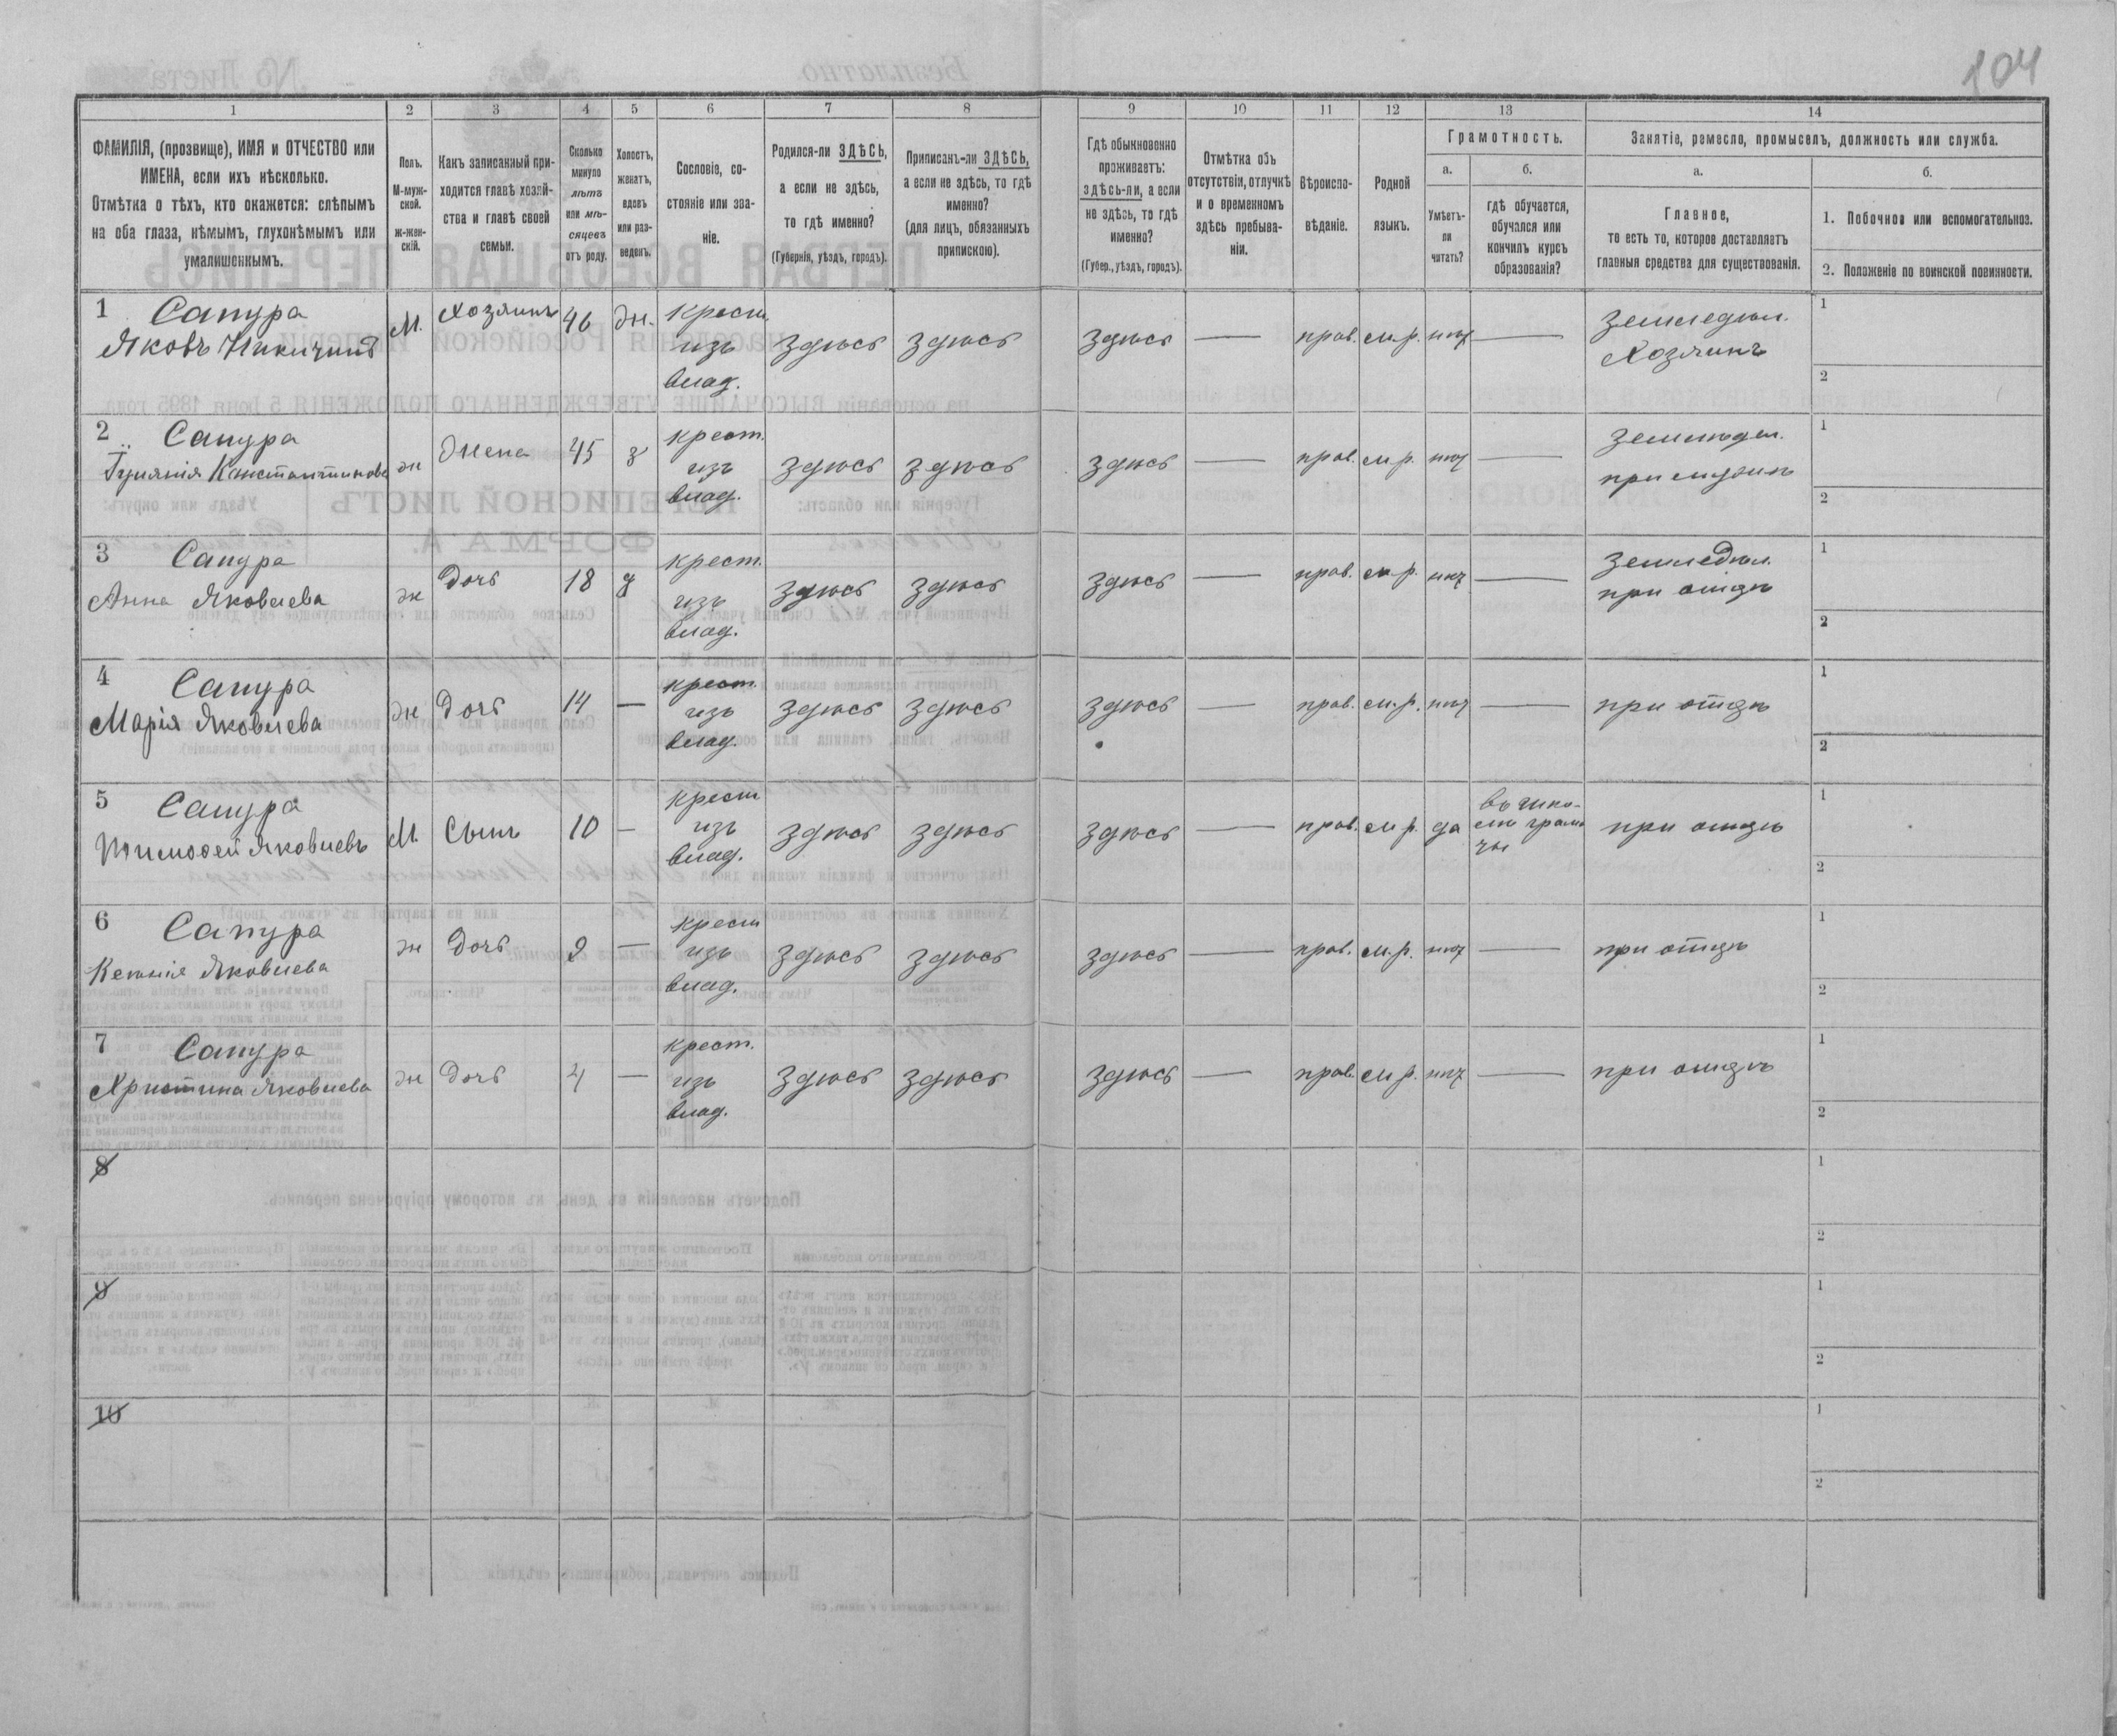 104
1 2 3 4 5 6 7 8 9 10 11 12 13 14
ФАМИЛІЯ, (прозвище), ИМЯ и ОТЧЕСТВО или
ИМЕНА, если ихъ нѣсколько.
Отмѣтка о тѣхъ, кто окажется: слѣпымъ
на оба глаза, нѣмымъ, глухонѣмымъ или
умалишеннымъ.
Полъ.
М-муж-
ской.
ж-жен-
скій.
Какъ записанный при-
ходится главѣ хозяй-
ства и главѣ своей
семьи.
Сколько
минуло
лѣтъ
или мѣ-
сяцевъ
отъ роду.
Холостъ,
женатъ,
вдовъ
или раз-
веденъ.
Сословіе, со-
стояніе или зва-
ніе.
Родился-ли ЗДѢСЬ,
а если не здѣсь,
то гдѣ именно?
(Губернія, уѣздъ, городъ).
Приписанъ-ли ЗДѢСЬ,
а если не здѣсь, то гдѣ
именно?
(для лицъ, обязанныхъ
припискою).
Гдѣ обыкновенно
проживаетъ:
здѣсь-ли, а если
не здѣсь, то гдѣ
именно?
(Губер., уѣздъ, городъ).
Отмѣтка объ
отсутствіи, отлучкѣ
и о временномъ
здѣсь пребыва-
ніи.
Вѣроиспо-
вѣданіе.
Родной
языкъ.
Грамотность.
а.
Умѣетъ-
ли
читать?
б.
гдѣ обучается,
обучался или
кончилъ курсъ
образованія?
Занятіе, ремесло, промыселъ, должность или служба.
а.
Главное,
то есть то, которое доставляетъ
главныя средства для существованія.
б.
1. Побочное или вспомогательное.
2. Положеніе по воинской повинности.
1 Сапура
Яковъ Никитинъ
М. Хозяинъ 46 Ж.
Крест.
изъ
влад.
здѣсь здѣсь здѣсь — прав. м.р. нѣт —
Земледѣл.
Хозяинъ
1
2
2 Сапура
Константинова
ж Жена 45 з
крест.
изъ
влад.
здѣсь здѣсь здѣсь — прав. м.р. нѣт —
Земледѣл.
при мужѣ
1
2
3 Сапура
Анна Яковлева
ж Дочь 18 д
крест.
изъ
влад.
здѣсь здѣсь здѣсь — прав. м.р. нѣт —
Земледѣл.
при отцѣ
1
2
4 Сапура
Марія Яковлева
ж Дочь 14 —
крест.
изъ
влад.
здѣсь здѣсь здѣсь — прав. м.р. нѣт —
при отцѣ
1
2
5 Сапура
Тимофей Яковлевъ
М. Сынъ 10 —
крест
изъ
влад.
здѣсь здѣсь здѣсь — прав. м.р. да
въ шко-
лѣ грамо
ты
при отцѣ
1
2
6 Сапура
Ксенія Яковлева
ж Дочь 9 —
крест
изъ
влад.
здѣсь здѣсь здѣсь — прав. м.р. нѣт —
при отцѣ
1
2
7 Сапура
Христина Яковлева
ж Дочь 4 —
крест.
изъ
влад.
здѣсь здѣсь здѣсь — прав. м.р. нѣт —
при отцѣ
1
2
8
1
2
9
1
2
10
1
2